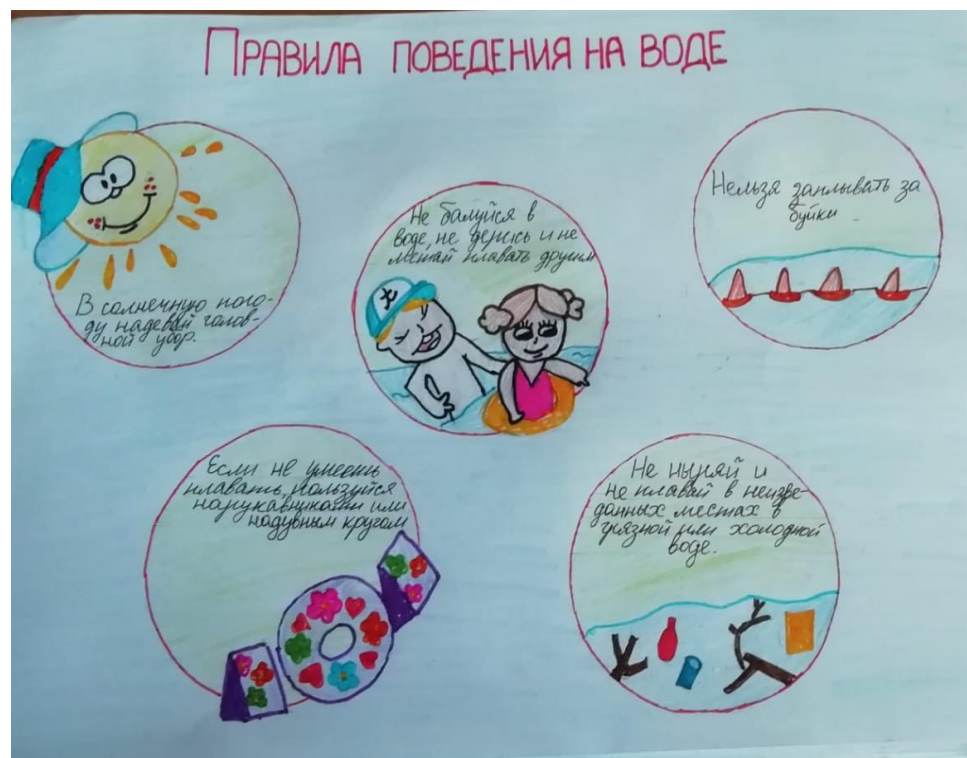 Правила поведения на воде
В солнечную пого-
ду надевай голов-
ной убор.
Не балуйся в
воде, не дерись и не
мешай плавать другим
Нельзя заплывать за
буйки.
Если не умеешь
плавать, пользуйся
нарукавниками или
надувным кругом
Не ныряй и
не плавай в неизве-
данных местах в
грязной или холодной
воде.